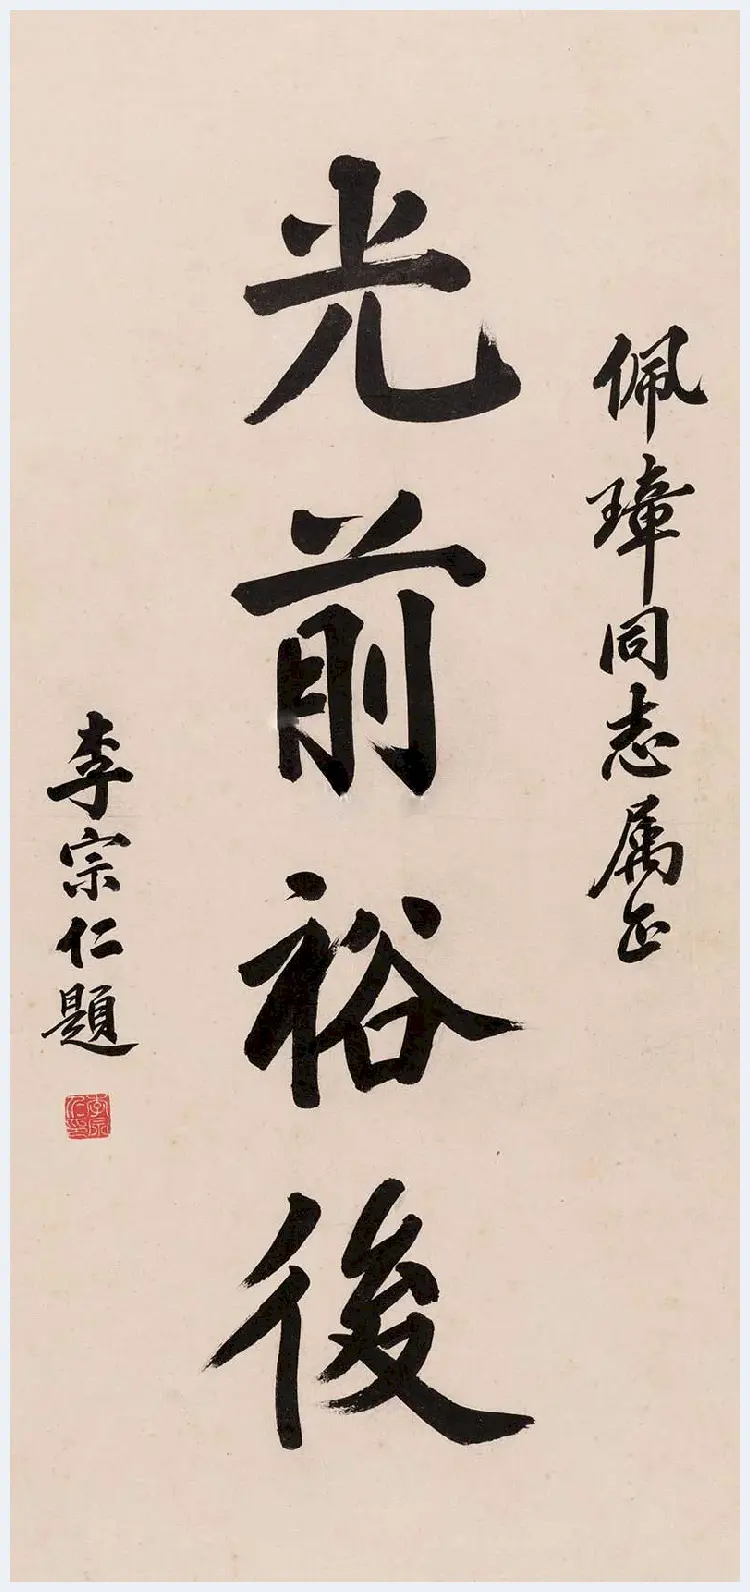 佩璋同志属正
光前裕後
李宗仁題